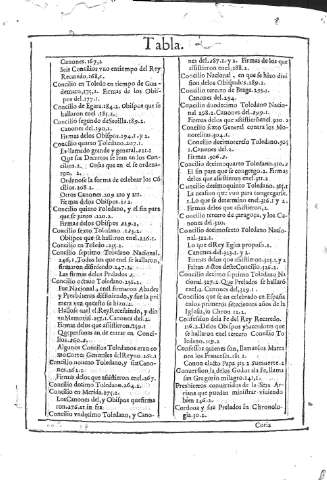 Tabla.
Canones. 167.2.
Seis Concilios vuo en tiempo del Rey
Recaredo. 168.1.
Concilio en Toledo en tiempo de Gun-
demaro, 175.1. Firmas de los Obis-
pos del. 177.1.
Concilio de Egara. 184.2. Obispos que se
hallaron en el. 185.1.
Concilio segundo de Seuilla. 189.1.
canones del. 190.1.
Firmas de los Obispos. 194.1. y 2.
Concilio quarto Toledano. 207.1.
Es llamado grande y general. 212.1
Que sus Decretos se leian en los Con-
cilios. 2. Cosas que en el se ordena-
ron. 2.
Ordenose la forma de celebrar los Có
cilios. 208.1.
Otros Canones. 209 210 y 211.
Firmas delos Obispos. 212.
Concilio quinto Toledano, y el fin para
que se junto. 220.1.
Firmas de los Obispos. 219.2.
Concilio sexto Toledano. 223.2.
Obispos que se hallaron en el. 226.1.
Concilio en Toledo. 235.2.
Concilio septimo Toledano Nacional.
246.1. Todos los que en el se hallaró,
firmaron diziendo. 247.2.
Las firmas delos Prelados. 2.
Concilio octauo Toledano. 256.1.
Fue Nacional, en el firmaron Abades
y Presbiteros difiniendo, y fue la pri
mera vez que esto se hizo. 2.
Hallose en el el Rey Recesuindo, y dio
vn Memorial. 257.1. Canones del. 2.
Firmas delos que assistieron. 259.1
Que personas an de entrar en Conci-
lios. 260.2.
Algunos Concilios Toledanos eran co
mo Cortes Generales del Reyno. 261.1
Concilio noueno Toledano, y sus Cano-
nes. 262.2.
Firmas delos que assistieron en el. 267.
Concilio decimo Toledano. 264.2.
Concilio en Merida. 275.1.
Los Canones del, y Obispos que firma
ron. 276. at in fin.
Concilio vndecimo Toledano, y Cano-
nes del. 287.1. y 2. Firmas de los que
assistieron en el. 288.2.
Concilio Nacional, en que se hizo diui
sion delos Obispados. 289.1.
Concilio tercero de Braga. 293.1.
Canones del. 294.
Concilio duodecimo Toledano Nacio-
nal 298.2. Canones del. 299.1.
Firmas delos que assistieron en el 300.2
Concilio sexto General contra los Mo-
notelitas. 304.1.
Concilio decimotercio Toledano. 305
1. Canones del. 2.
Firmas. 306.2.
Concilio decimo quarto Toledano. 310.2
El fin para que se congrego. 2. Firmas
delos que assistieron en el. 311.2
Concilio decimoquinto Toledano. 315.1
La ocasion que vuo para congregarse.
2. Lo que se determino en el. 316.1 y 2.
Firmas delos que assistieron. 2.
Concilio tercero de çaragoça, y los Ca-
nones del. 320.
Concilio decimosexto Toledano Nacio-
nal. 322.1.
Lo que el Rey Egica propuso. 2.
Canones del. 323.1. y 2.
Firmas delos que assistieron. 325.2 y 2
Concilio decimo septimo Toledano Na
cional. 327.2. Que Prelados se hallaró
en el 2. Canones del. 329.1.
Concilios que se an celebrado en España
enlos primeros setecientos años de la
Iglesia, vi Chron 12.2.
Confession dela Fe del Rey Recaredo.
116.2. Delos Obispos y hereticos que
se hallaron en el tercero Concilio To
ledano. 119.2.
Confessos quienes son, llamanlos Marra
nos los Franceses. 181.2.
Conon electo Papa 313.2 su muerte. 2
Presbiteros conuertidos de la Seta Ar-
riana que puedan ministrar viniendo
bien 246.2.
Cordoua y sus Prelados in Chronolo-
gia. 30.2.
Coria